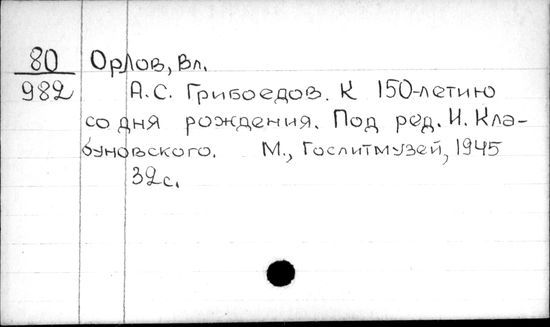 80 Орлов, Вл.
982 А.С. Грибоедов. К 150-летию
со дня рождения. Под ред. И. Кла-
буновского. М., Гослитмузей, 1945
32с.